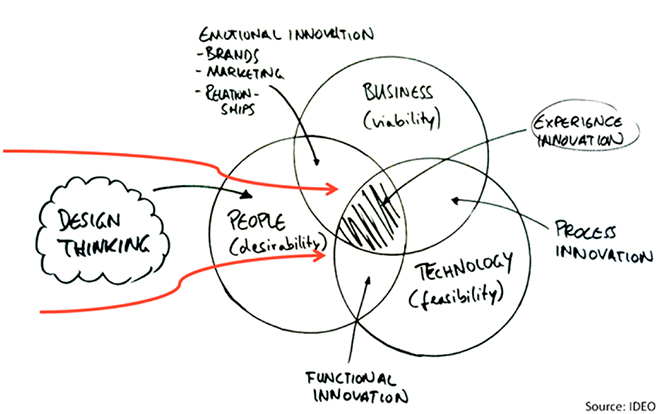 EMOTIONAL INNOVATION
- BRANDS
- MARKETING
- RELATION-
SHIPS
BUSINESS
(viability)
EXPERIENCE
INNOVATION
DESIGN
THINKING
PEOPLE
(desirability)
PROCESS
INNOVATION
TECHNOLOGY
(feasibility)
FUNCTIONAL
INNOVATION
Source: IDEO